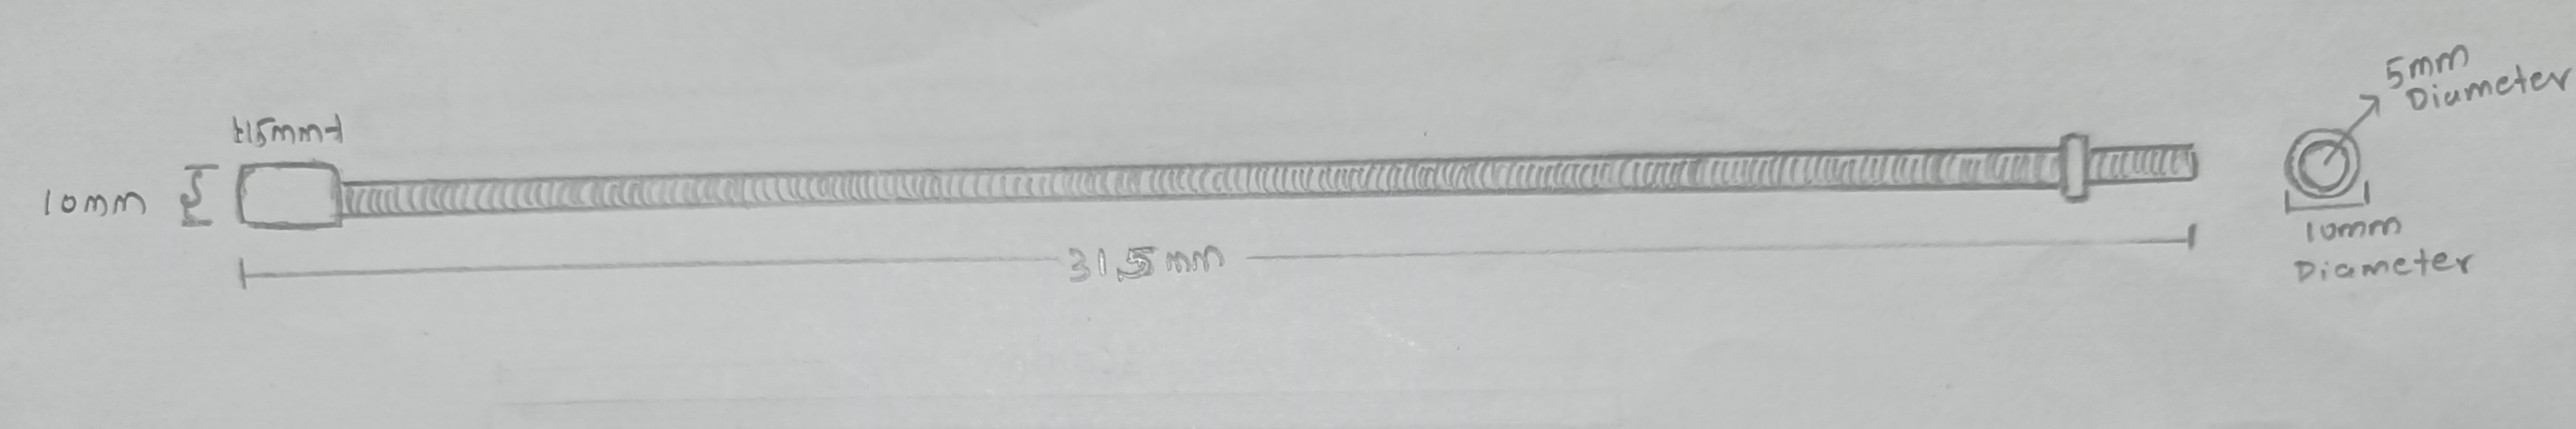 15mm
10mm
315mm
5mm
Diameter
10mm
Diameter